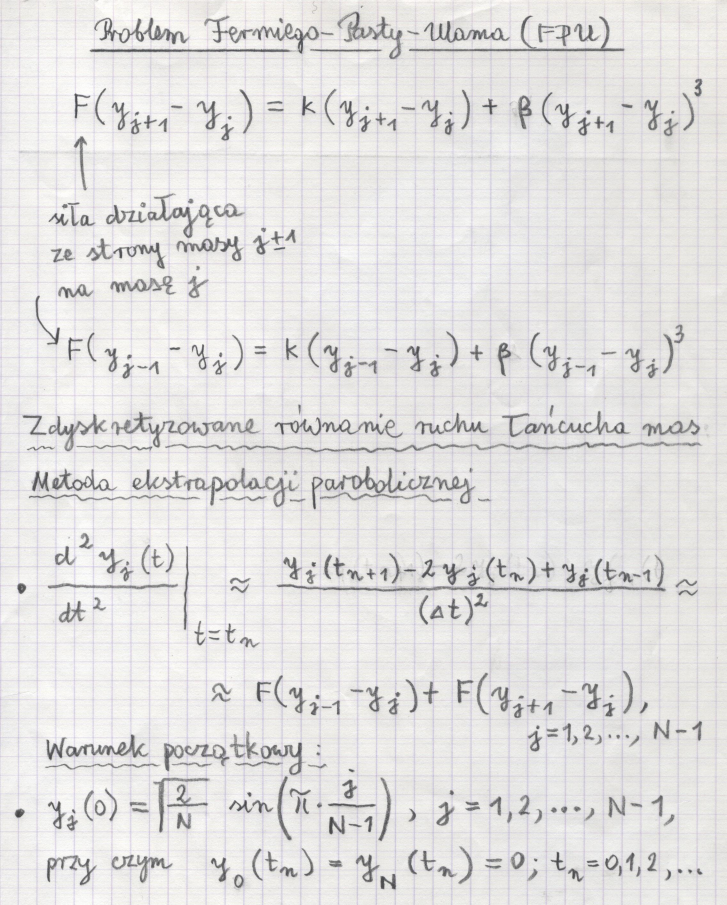 Problem Fermiego-Pasty-Ulama (FPU)
F(y_{j+1} - y_j) = k(y_{j+1} - y_j) + β(y_{j+1} - y_j)^3
siła działająca
ze strony masy j±1
na masę j
F(y_{j-1} - y_j) = k(y_{j-1} - y_j) + β (y_{j-1} - y_j)^3
Zdyskretyzowane równanie ruchu łańcucha mas
Metoda ekstrapolacji parobolicznej
• d^2 y_j(t) / dt^2 |_{t=t_n} ≈ (y_j(t_{n+1}) - 2 y_j(t_n) + y_j(t_{n-1})) / (Δt)^2 ≈
≈ F(y_{j-1} - y_j) + F(y_{j+1} - y_j),
j=1,2,..., N-1
Warunek początkowy:
• y_j(0) = √(2/N) sin(π · j/(N-1)), j = 1,2,..., N-1,
przy czym y_0(t_n) = y_N(t_n) = 0; t_n = 0,1,2,...